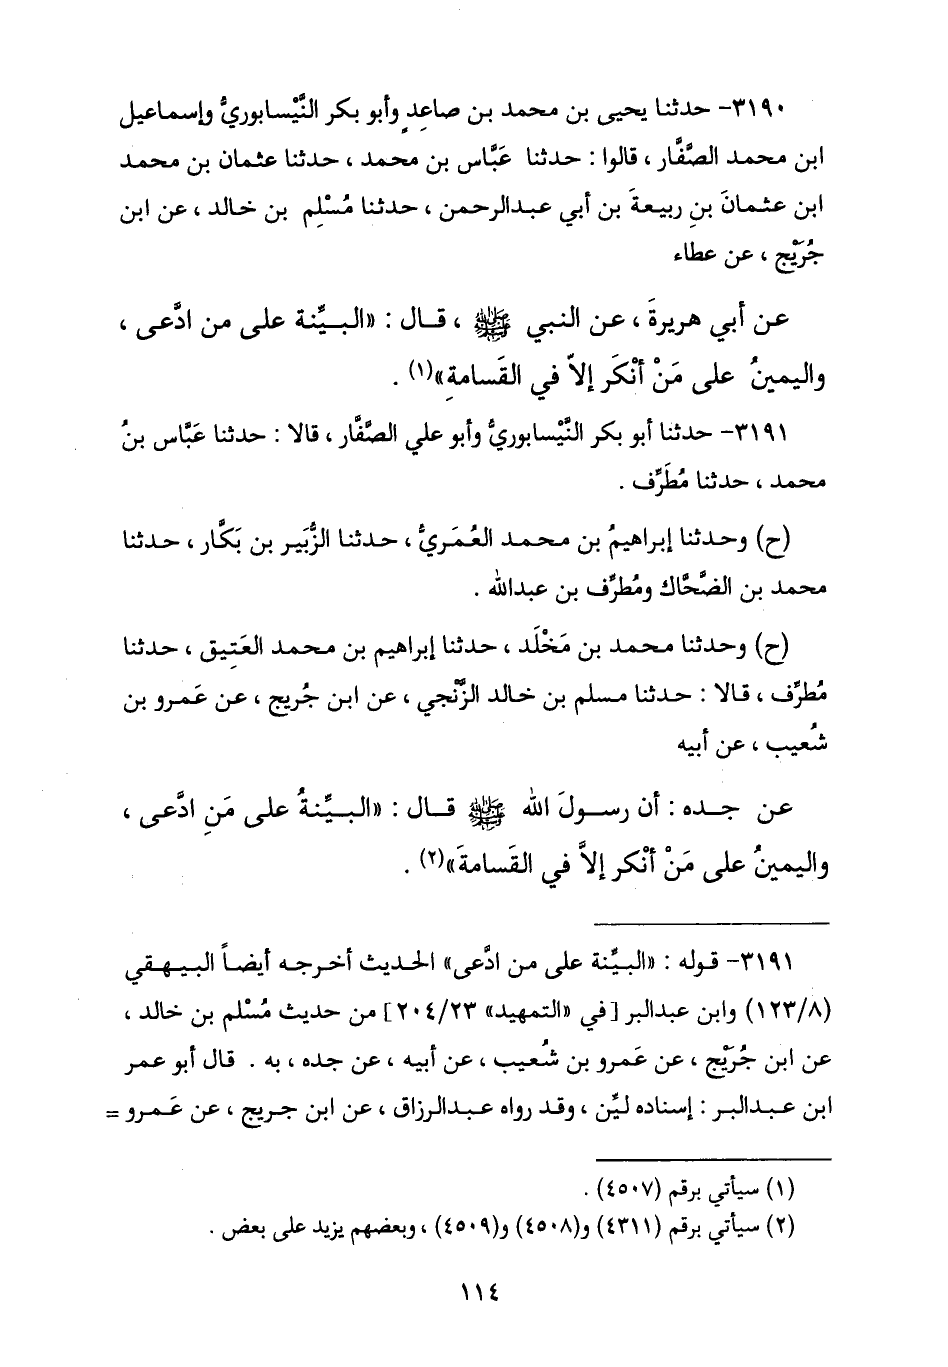 ٣١٩٠- حدثنا يحيى بن محمد بن صاعِدٍ وأبو بكر النَّيْسابوريُّ وإسماعيل
ابن محمد الصَّفَّار ، قالوا : حدثنا عَبَّاس بن محمد ، حدثنا عثمان بن محمد
ابن عثمانَ بنِ ربيعةَ بن أبي عبدالرحمن ، حدثنا مُسْلِم بن خالد ، عن ابن
جُرَيْج ، عن عطاء
عن أبي هريرةَ ، عن النبي ﷺ ، قال : «البيِّنة على من ادَّعى ،
واليمينُ على مَنْ أنْكَر إلاّ في القَسامةِ»(١) .
٣١٩١- حدثنا أبو بكر النَّيْسابوريُّ وأبو علي الصَّفَّار ، قالا : حدثنا عَبَّاس بنُ
محمد ، حدثنا مُطَرِّف .
(ح) وحدثنا إبراهيمُ بن محمد العُمَريُّ ، حدثنا الزُّبَير بن بَكَّار ، حدثنا
محمد بن الضَّحَّاك ومُطرِّف بن عبدالله .
(ح) وحدثنا محمد بن مَخْلَد ، حدثنا إبراهيم بن محمد العَتِيق ، حدثنا
مُطرِّف ، قالا : حدثنا مسلم بن خالد الزَّنْجي ، عن ابن جُريج ، عن عَمرو بن
شُعيب ، عن أبيه
عن جده : أن رسولَ الله ﷺ قال : «البيِّنةُ على مَنِ ادَّعى ،
واليمينُ على مَنْ أنْكر إلاَّ في القَسامةَ»(٢) .
٣١٩١- قوله : «البيِّنة على من ادَّعى» الحديث أخرجه أيضاً البيهقي
(١٢٣/٨) وابن عبدالبر [في «التمهيد» ٢٠٤/٢٣] من حديث مُسْلم بن خالد ،
عن ابن جُرَيْج ، عن عَمرو بن شُعيب ، عن أبيه ، عن جده ، به . قال أبو عمر
ابن عبدالبر : إسناده ليِّن ، وقد رواه عبدالرزاق ، عن ابن جريج ، عن عَمرو =
(١) سيأتي برقم (٤٥٠٧) .
(٢) سيأتي برقم (٤٣١١) و(٤٥٠٨) و(٤٥٠٩) ، وبعضهم يزيد على بعض .
١١٤